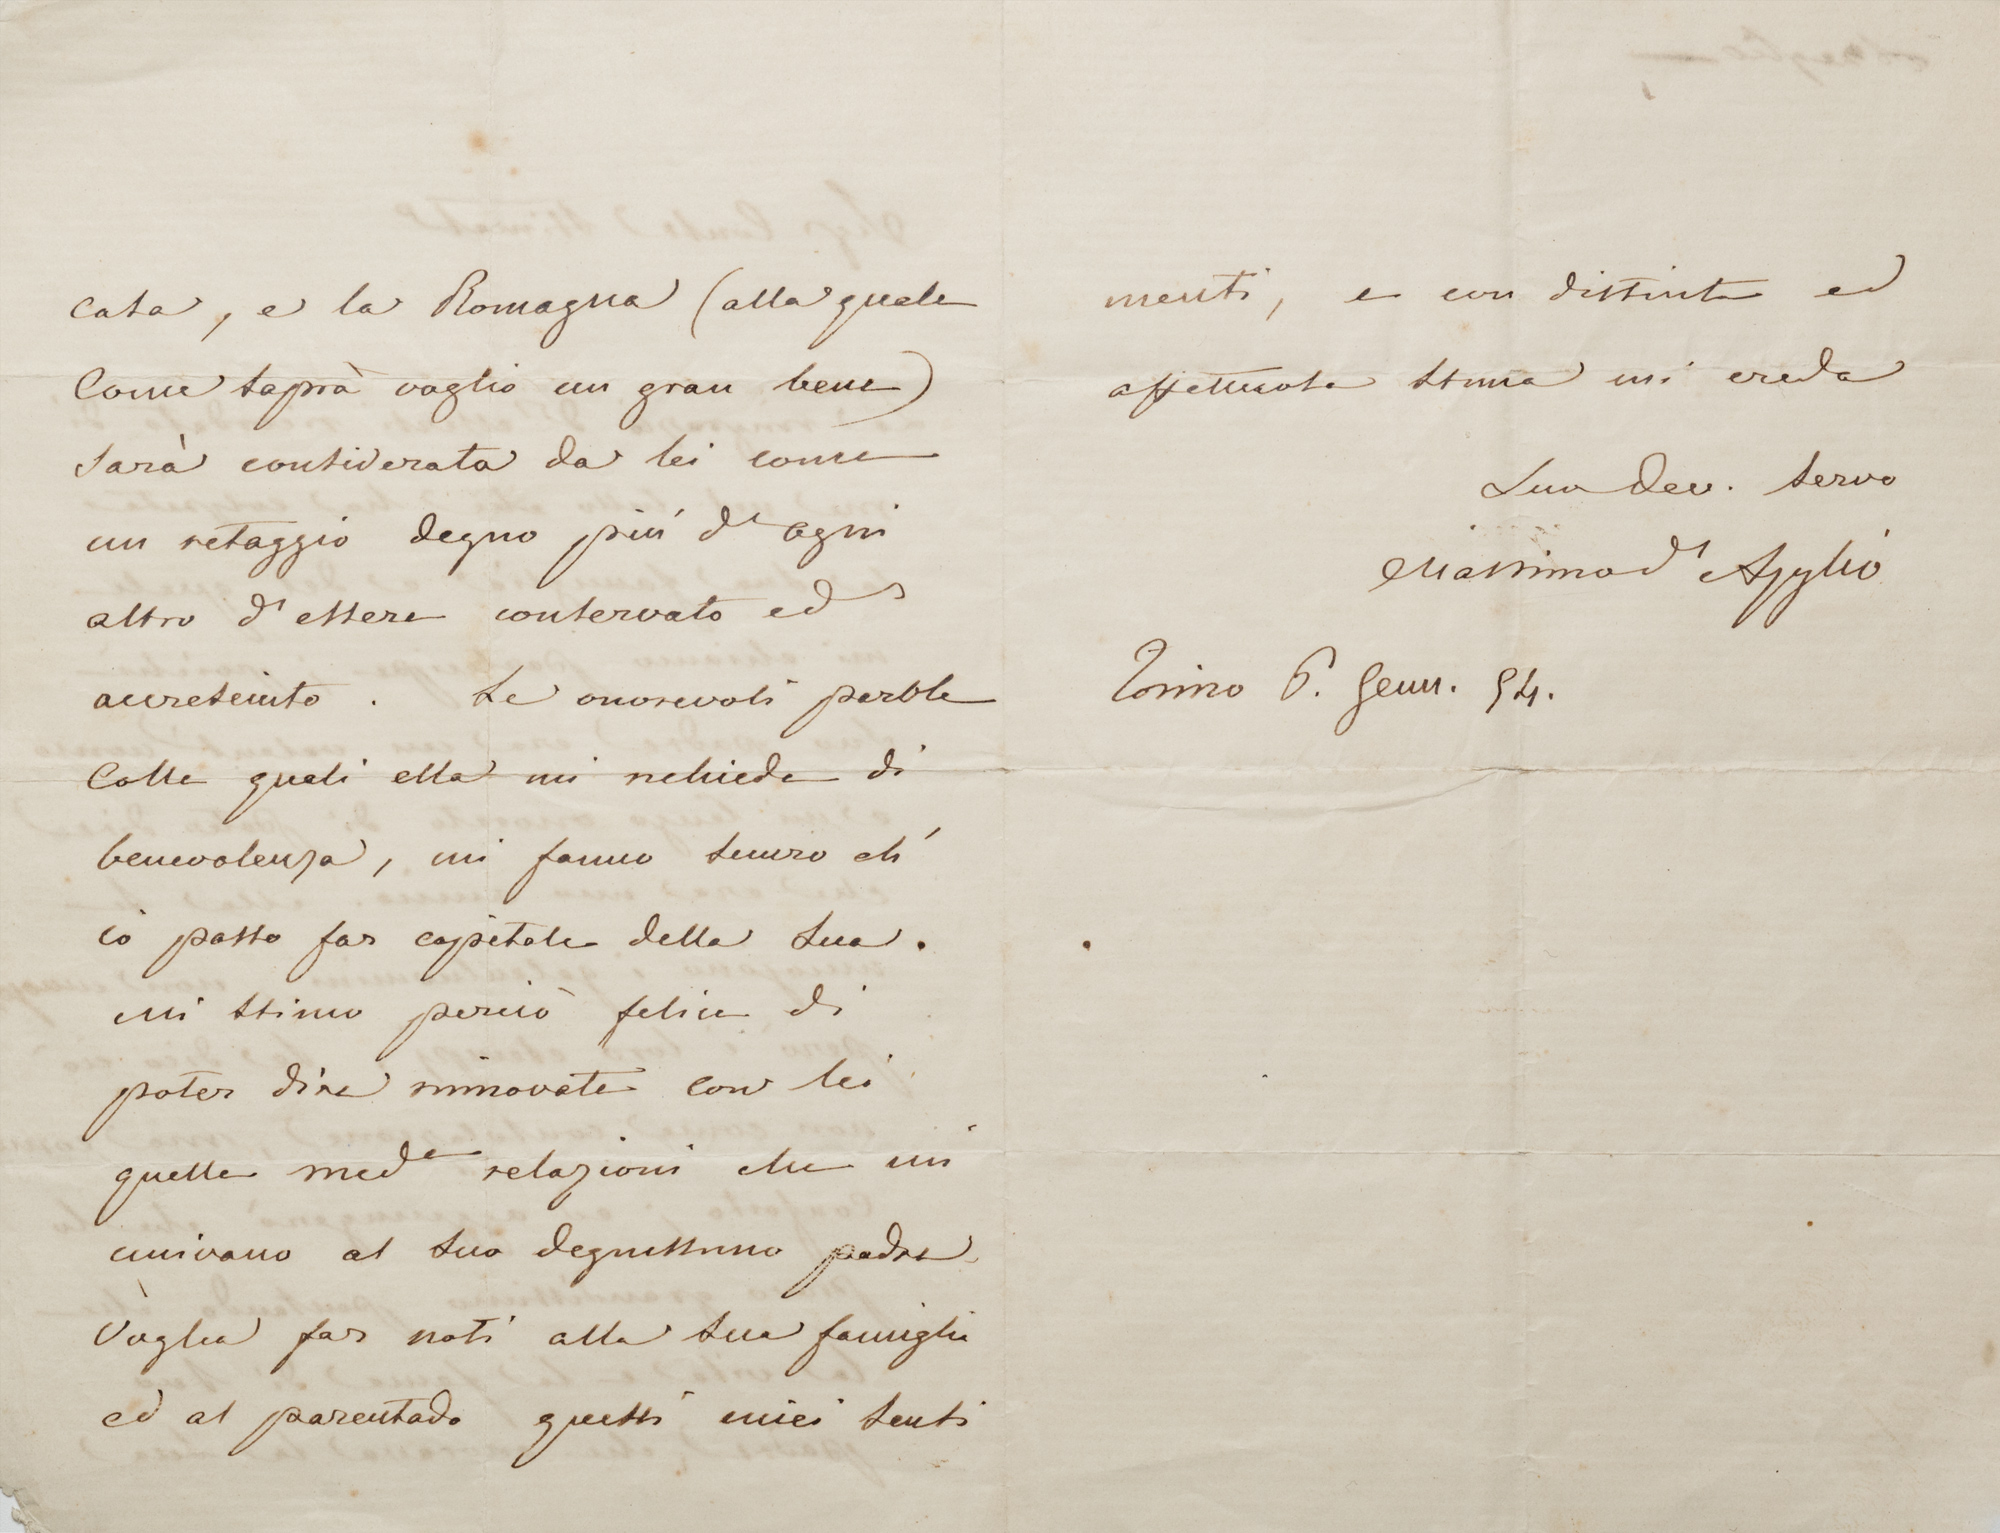 casa, e la Romagna (alla quale
Come saprà voglio un gran bene)
sarà considerata da lei come
un retaggio degno più d'ogni
altro d'essere conservato ed
accresciuto. Le onorevoli parole
Colle quali ella mi richiede di
benevolenza, mi fanno sicuro ch'
io posso far capitale della sua.
Mi stimo perciò felice di
poter dire rinnovate con lei
quelle med.e relazioni che mi
univano al suo degnissimo padre.
Voglia far noti alla sua famiglia
ed al parentado questi miei senti
menti, e con distinta ed
affettuosa stima mi creda
Suo dev. servo
Massimo d'Azeglio
Torino 6. Genn. 54.